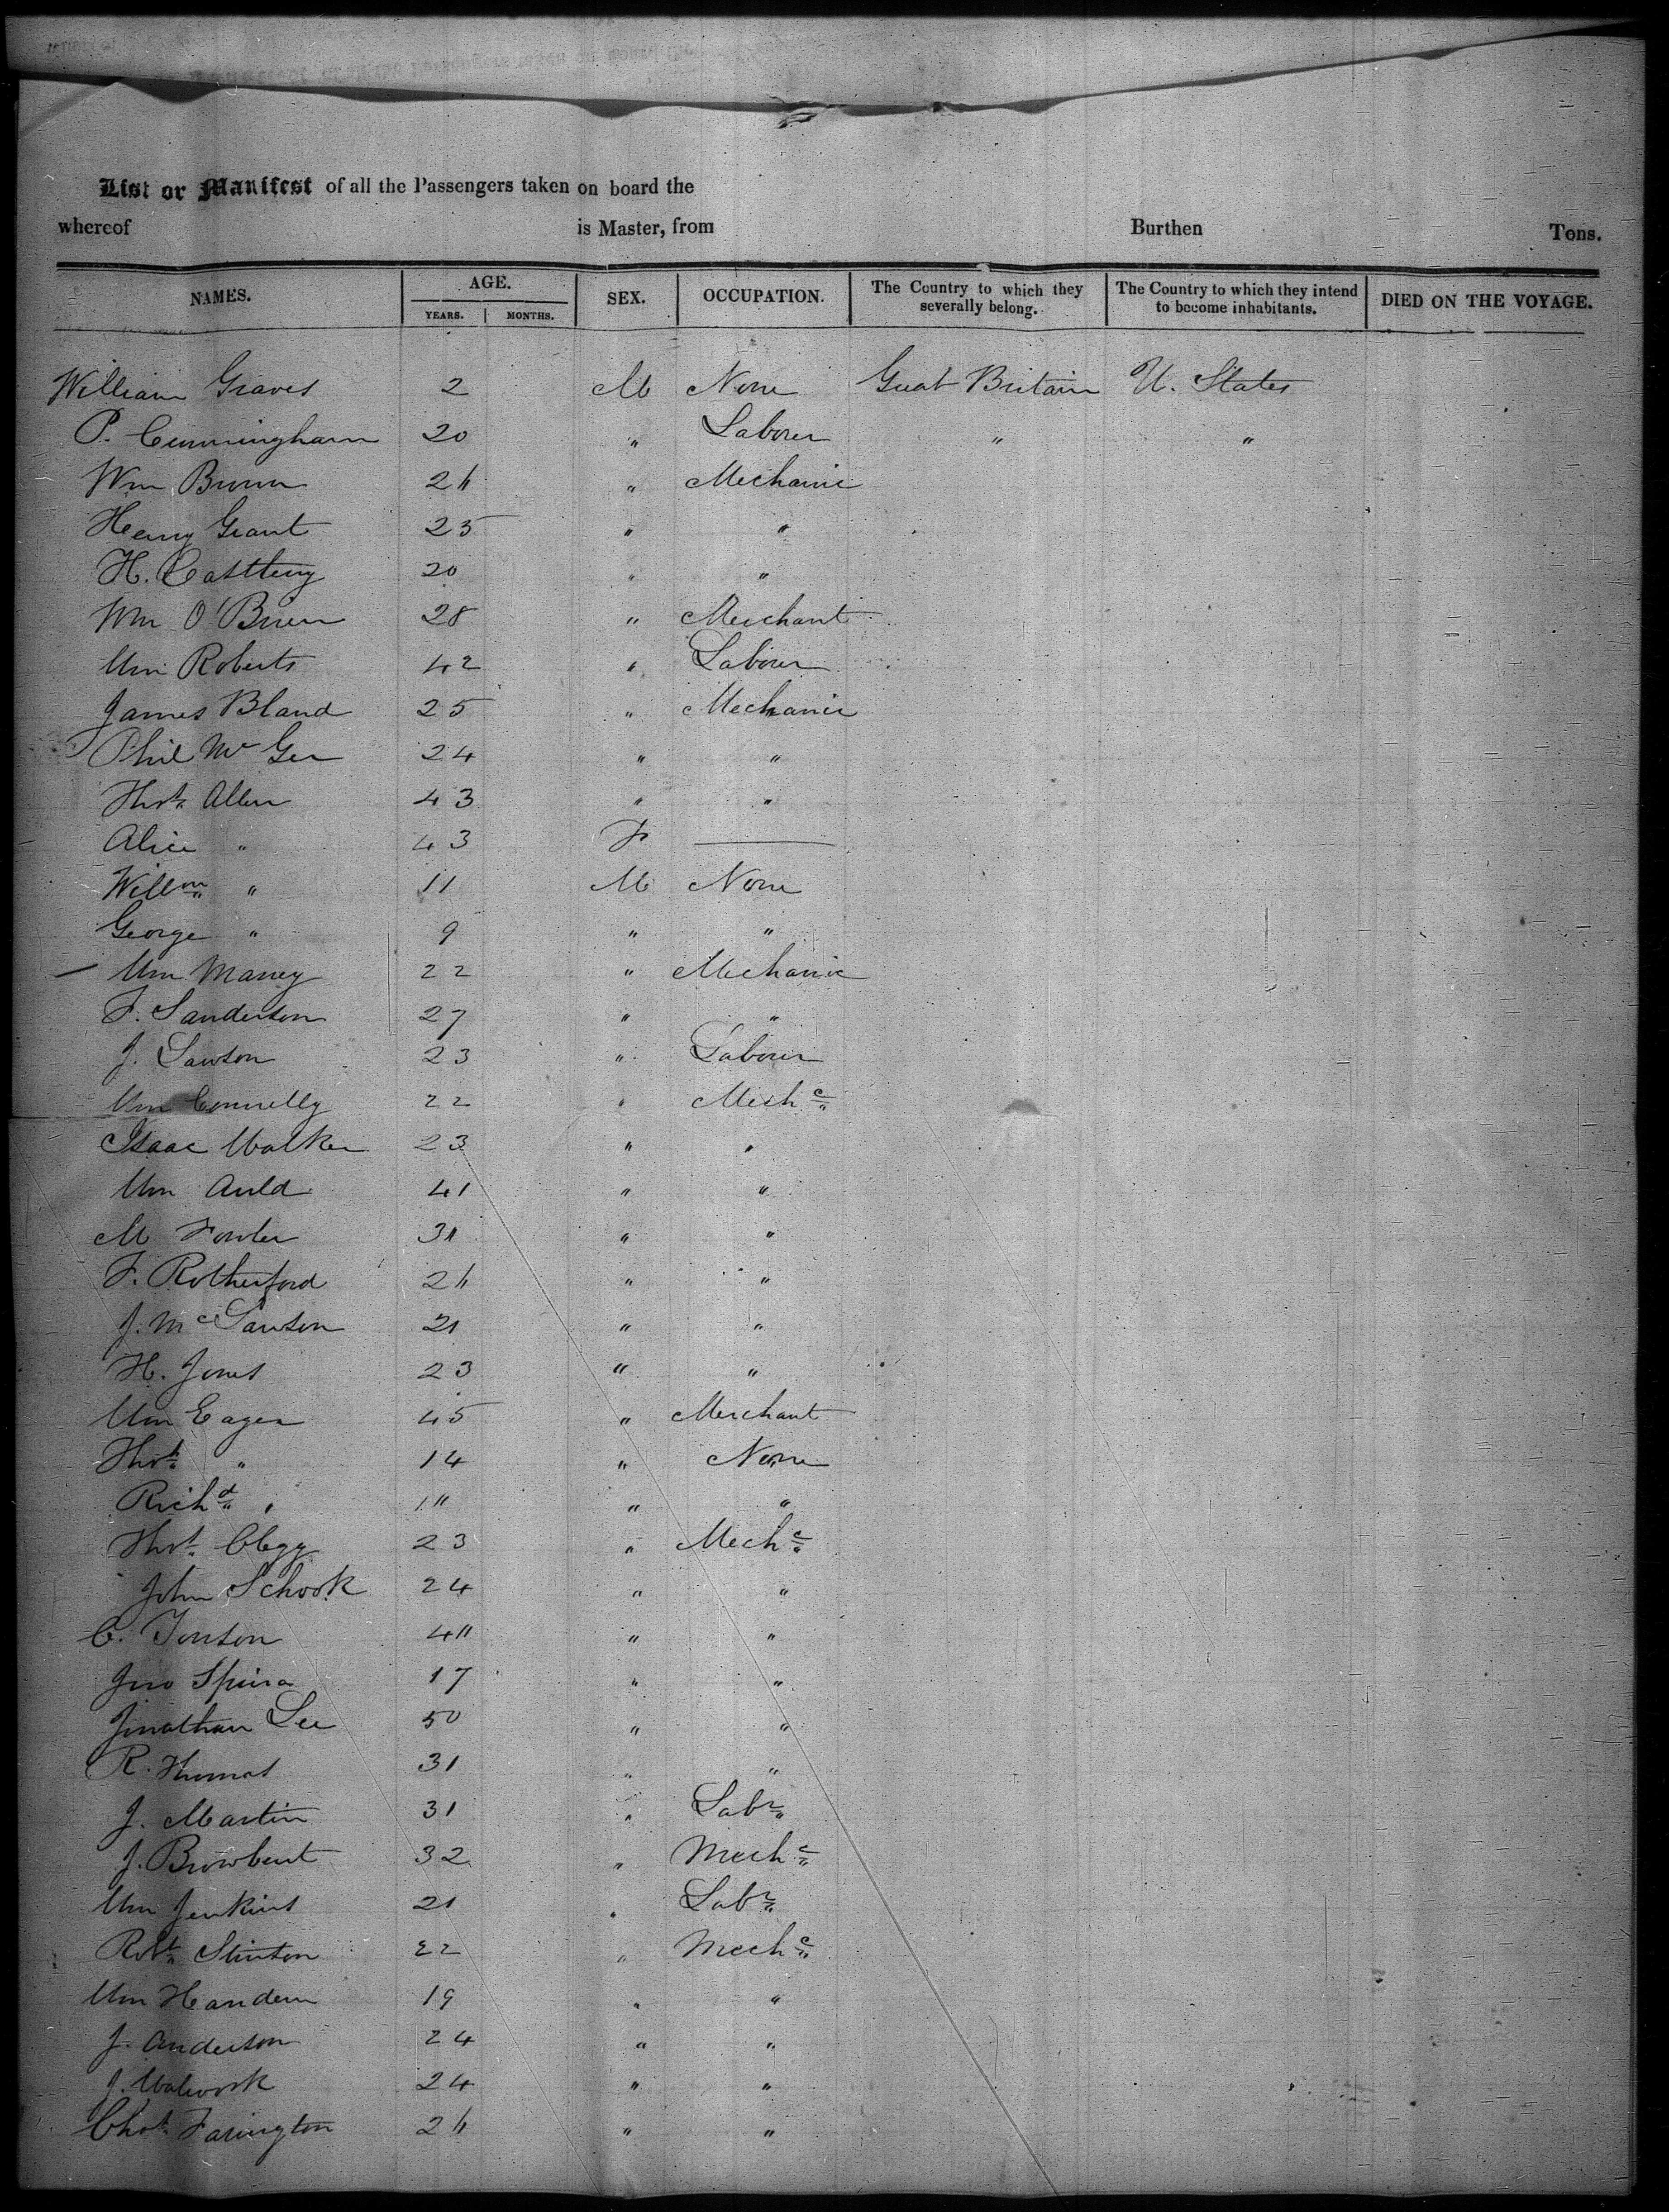 List or Manifest of all the Passengers taken on board the
whereof is Master, from Burthen Tons.
NAMES. AGE. YEARS. MONTHS. SEX. OCCUPATION. The Country to which they severally belong. The Country to which they intend to become inhabitants. DIED ON THE VOYAGE.
William Graves 2 M None Great Britain U. States
P. Cunningham 20 " Laborer " "
Wm Brown " Mechanic
Henry Grant 25 " "
H. 20 " "
Wm O'Brien 28 " Merchant
Wm Roberts 42 " Laborer
James Bland 25 " Mechanic
Phil Mc Gee 24 " "
Thos. Allen 43 " "
Alice " 43 F ———
Willm " 11 M None
George " 9 " "
Wm Maney 22 " Mechanic
F. Sanderson 27 " "
J. Lawson 23 " Laborer
Wm Connelly 22 " Mechc
Isaac Walker 23 " "
Wm Auld 41 " "
M Fowler 31 " "
F. Rotherford " "
J. Mc Lawson 21 " "
H. Jones 23 " "
Wm Eager 45 " Merchant
Thos " 14 " None
Richd " 11 " "
Thos. Clegg 23 " Mechc
John Schook 24 " "
C. Tonson 41 " "
Jno 17 " "
Jonathan Lee 50 " "
R. Thomas 31 " "
J. Martin 31 " Labr
J. Browbent 32 " Mechc
Wm Jenkins 21 " Labr
Robt Stinton 22 " Mechc
Wm 19 " "
J. Anderson 24 " "
J. Walwork 24 " "
Chas. Farington " "